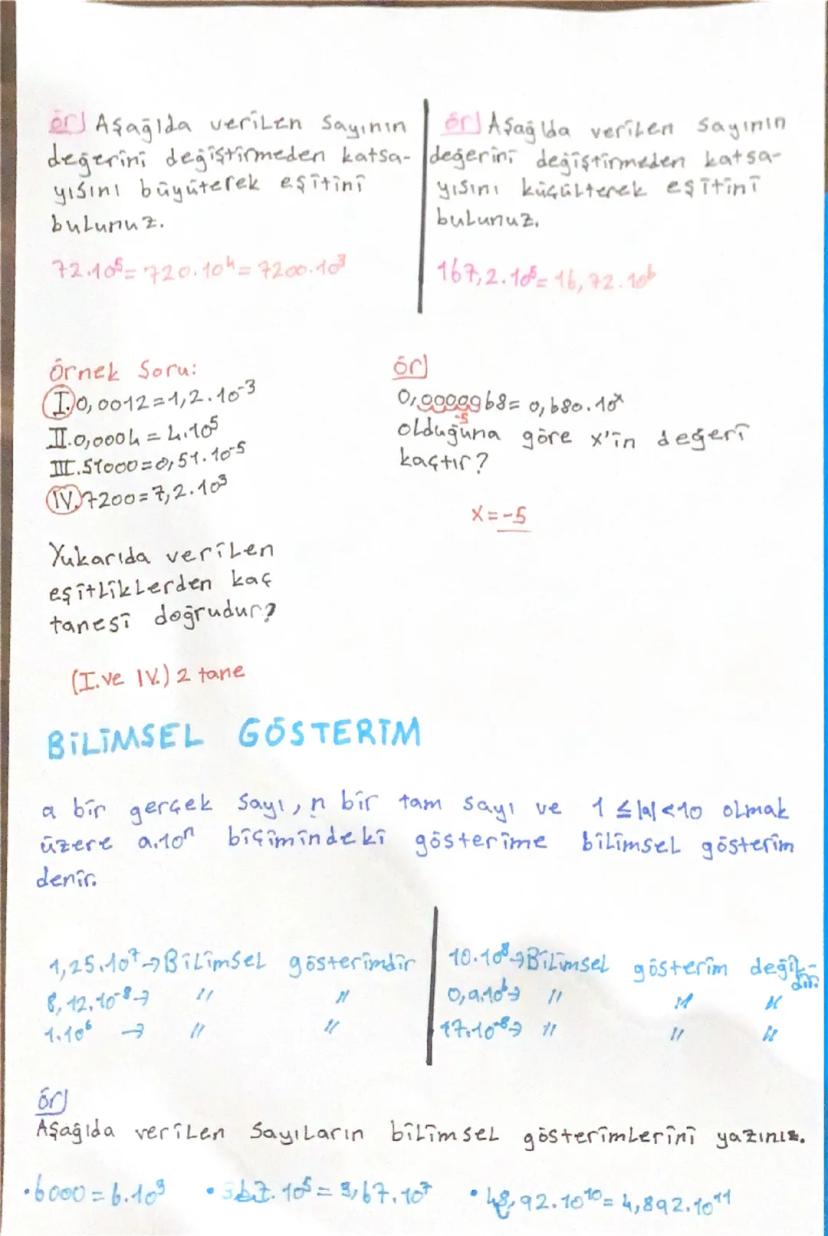 ör) Aşağıda verilen sayının
değerini değiştirmeden katsa-
yısını büyüterek eşitini
bulunuz.
72.10⁵= 720.10⁴= 7200.10³
ör) Aşağıda verilen sayının
değerini değiştirmeden katsa-
yısını küçülterek eşitini
bulunuz.
167,2.10⁵= 16,72.10⁶
Örnek Soru:
I.0,0012=1,2.10⁻³
II.0,0004=4.10⁵
III.51000=0,51.10⁻⁵
IV.7200=7,2.10³
Yukarıda verilen
eşitliklerden kaç
tanesi doğrudur?
(I.ve IV.) 2 tane
ör)
0,0000068= 0,680.10ˣ
-5
olduğuna göre x'in değeri
kaçtır?
x=-5
BİLİMSEL GÖSTERİM
a bir gerçek sayı, n bir tam sayı ve 1≤|a|<10 olmak
üzere a.10ⁿ biçimindeki gösterime bilimsel gösterim
denir.
1,25.10⁷→Bilimsel gösterimdir
8,12.10⁻⁸→ " "
1.10⁶ → " "
10.10⁸→Bilimsel gösterim değil-
dir.
0,9.10⁶→ " " "
17.10⁻⁸→ " " "
ör)
Aşağıda verilen sayıların bilimsel gösterimlerini yazınız.
•6000=6.10³ •367.10⁵=3,67.10⁷ •48,92.10¹⁰=4,892.10¹¹